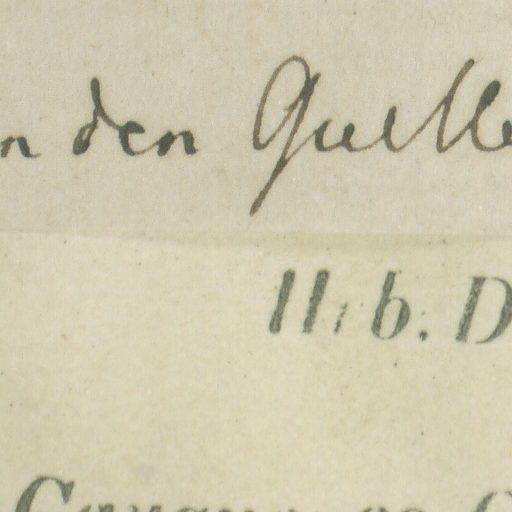 n den Quelle
Hb. D